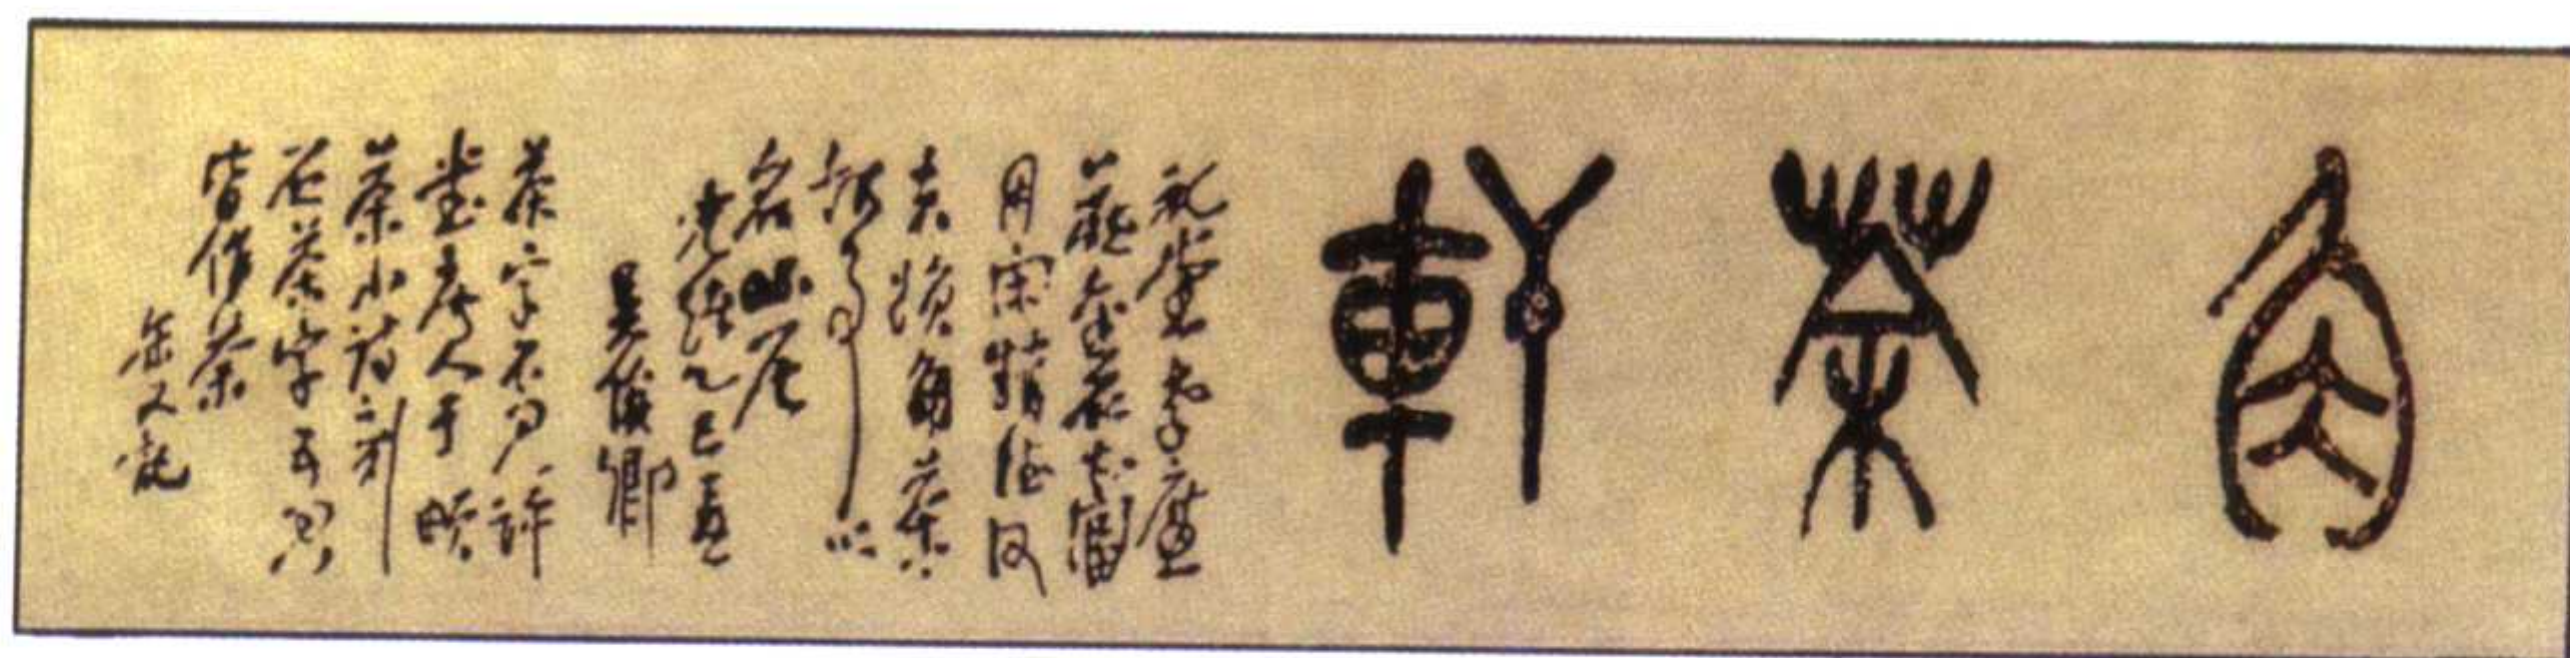 角茶軒
礼堂孝廉
藏金石甚富
用宋趙德父
夫婦角茶
事以
名山居
光緒乙巳夏
吳俊卿
茶字不見許
書唐人于頔
茶山詩刻
石茶字五見
皆作荼
缶又記